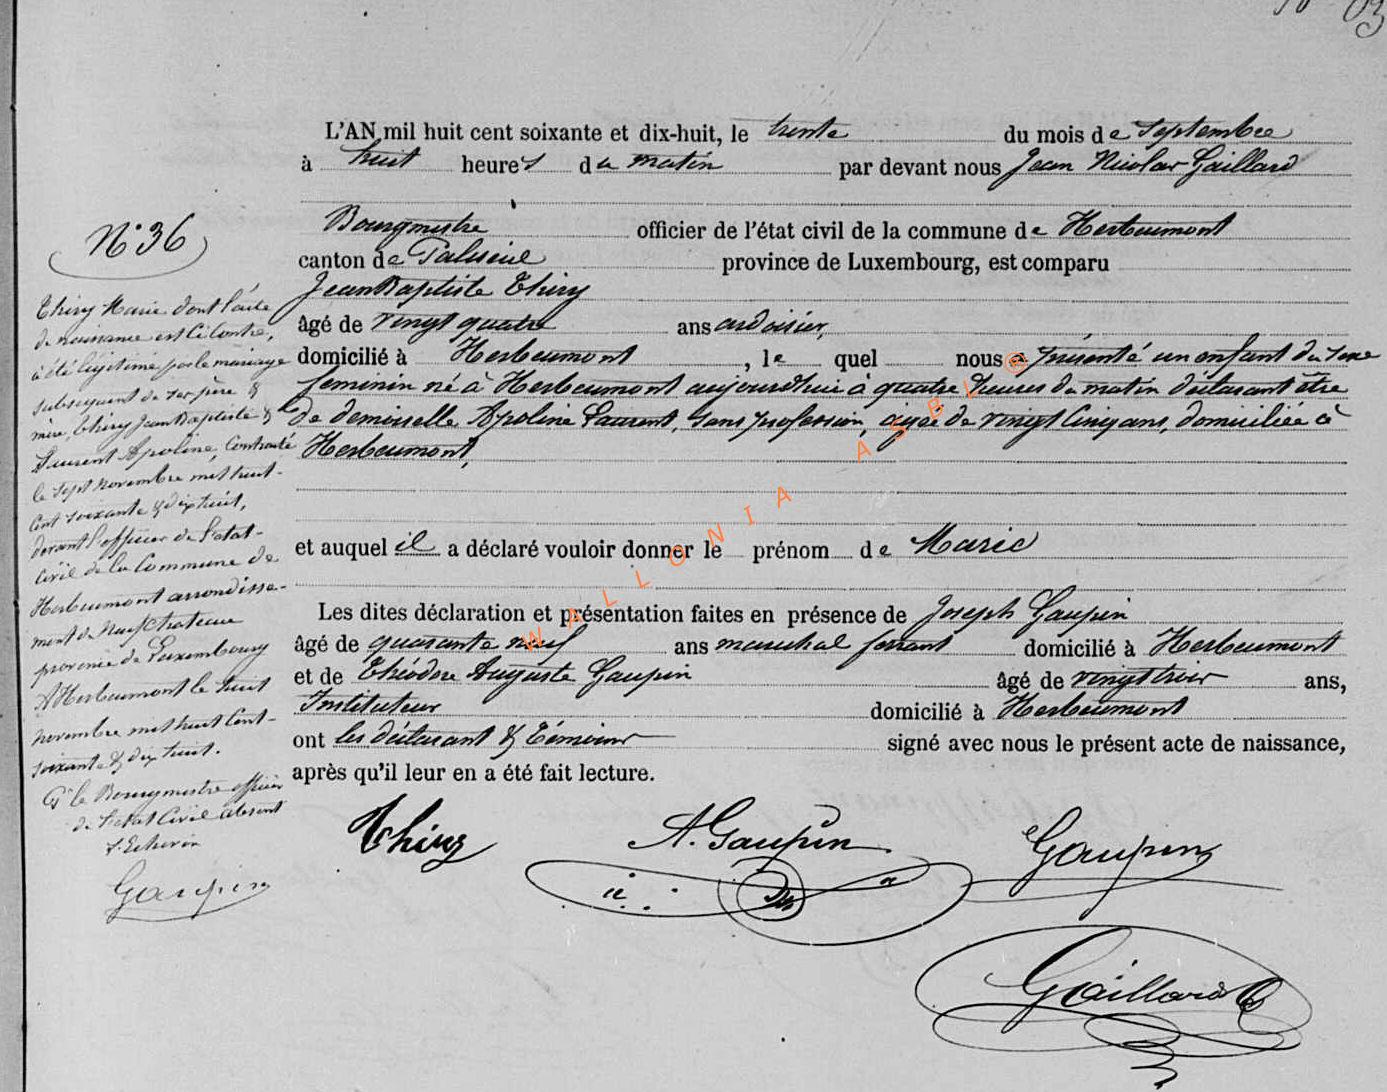 L'AN mil huit cent soixante et dix-huit, le trente du mois de Septembre
à huit heures du matin par devant nous Jean Nicolas Gaillard
Bourgmestre officier de l'état civil de la commune de Herbeumont
canton de Paliseul province de Luxembourg, est comparu
Jean Baptiste Thiry
âgé de vingt quatre ans ardoisier,
domicilié à Herbeumont, le quel nous a présenté un enfant du sexe
feminin né à Herbeumont aujourdhui à quatre heures du matin déclarant être
de demoiselle Apoline Laurent, sans profession, agée de vingt cinq ans, domiciliée à
Herbeumont,
et auquel il a déclaré vouloir donner le prénom de Marie
Les dites déclaration et présentation faites en présence de Joseph Gaupin
âgé de quarante neuf ans marechal ferrant domicilié à Herbeumont
et de Théodore Auguste Gaupin âgé de vingt trois ans,
Instituteur domicilié à Herbeumont
ont les déclarant & témoins signé avec nous le présent acte de naissance,
après qu'il leur en a été fait lecture.
Thiry A. Gaupin Gaupin
Gaillard
N° 36
Thiry Marie dont l'acte
de naissance est ci contre,
a été légitimé par le mariage
subsequent de ses père &
mère, Thiry Jean Baptiste &
Laurent Apoline, contracté
le sept novembre mil huit
cent soixante & dix huit,
devant l'officier de l'etat-
civil de la Commune de
Herbeumont arrondisse-
ment de Neufchateau
province de Luxembourg
A Herbeumont le huit
novembre mil huit cent-
soixante & dix huit.
Pr le Bourgmestre officier
de l'etat Civil absent
l'Echevin
Gaupin
WALLONIA ASBL ®